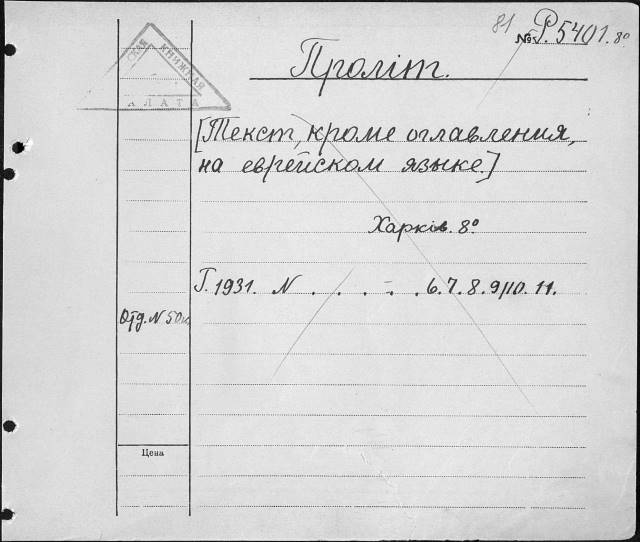 81 № P.5401. 8º
СКАЯ КНИЖНАЯ
АЛАТА
Проліт.
[Текст, кроме оглавления,
на еврейском языке.]
Харків. 8º
Г. 1931. N . . . – . . 6. 7. 8. 9/10. 11.
Отд. N 50
Цена